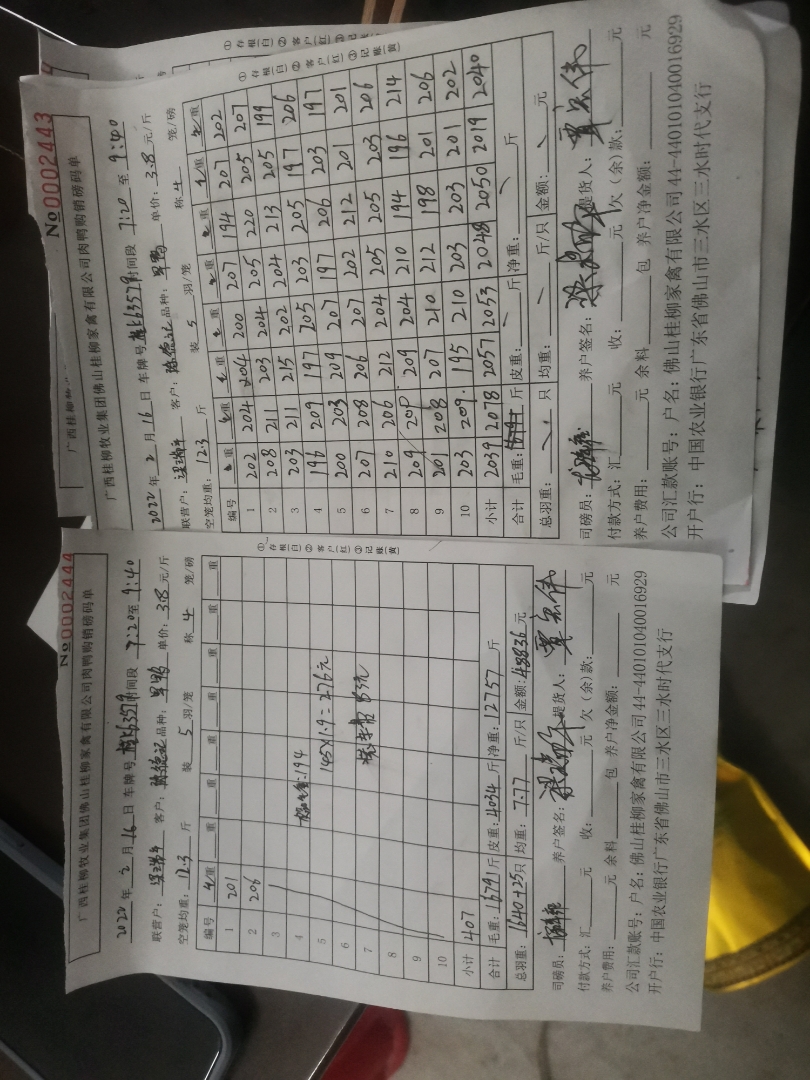 № 0002443
广西桂柳牧业集团佛山桂柳家禽有限公司肉鸭购销磅码单
2022年2月16日 车牌号 时间段 7:20至9:40
联营户: 客户: 品种: 单价:3.8元/斤
空笼均重:12.3斤 装5羽/笼 称4笼/磅
编号 重 重 重 重 重 重 重 重
1 202 204 204 200 207 194 207 202
2 208 211 203 204 205 220 205 207
3 203 211 215 202 204 213 205 199
4 196 209 197 205 203 205 197 206
5 200 203 209 207 197 206 203 197
6 207 208 206 207 202 212 201 201
7 210 206 212 204 205 205 203 206
8 209 200 209 204 210 194 196 214
9 201 208 207 210 212 198 201 206
10 203 209 195 210 203 203 201 202
小计 2039 2078 2057 2053 2048 2050 2019 2040
合计 毛重: 斤 皮重: 斤 净重: 斤
总羽重: 只 均重: 斤/只 金额: 元
司磅员: 养户签名: 提货人:
付款方式:汇 元 收: 元 欠(余)款: 元
养户费用: 元 余料 包 养户净金额: 元
公司汇款账号:户名:佛山桂柳家禽有限公司44-440101040016929
开户行:中国农业银行广东省佛山市三水区三水时代支行
①存根(白)②客户(红)③记账(黄)
№ 0002444
广西桂柳牧业集团佛山桂柳家禽有限公司肉鸭购销磅码单
2022年2月16日 车牌号 时间段 7:20至9:40
联营户: 客户: 品种: 单价:3.8元/斤
空笼均重:12.3斤 装5羽/笼 称4笼/磅
编号 重 重 重 重 重 重 重 重
1 201
2 206
3
4 194
5 145×1.9=276元
6
7
8
9
10
小计 407
合计 毛重:16791斤 皮重:4034斤 净重:12757斤
总羽重:1640+25只 均重:7.77斤/只 金额:48836元
司磅员: 养户签名: 提货人:
付款方式:汇 元 收: 元 欠(余)款: 元
养户费用: 元 余料 包 养户净金额: 元
公司汇款账号:户名:佛山桂柳家禽有限公司44-440101040016929
开户行:中国农业银行广东省佛山市三水区三水时代支行
①存根(白)②客户(红)③记账(黄)